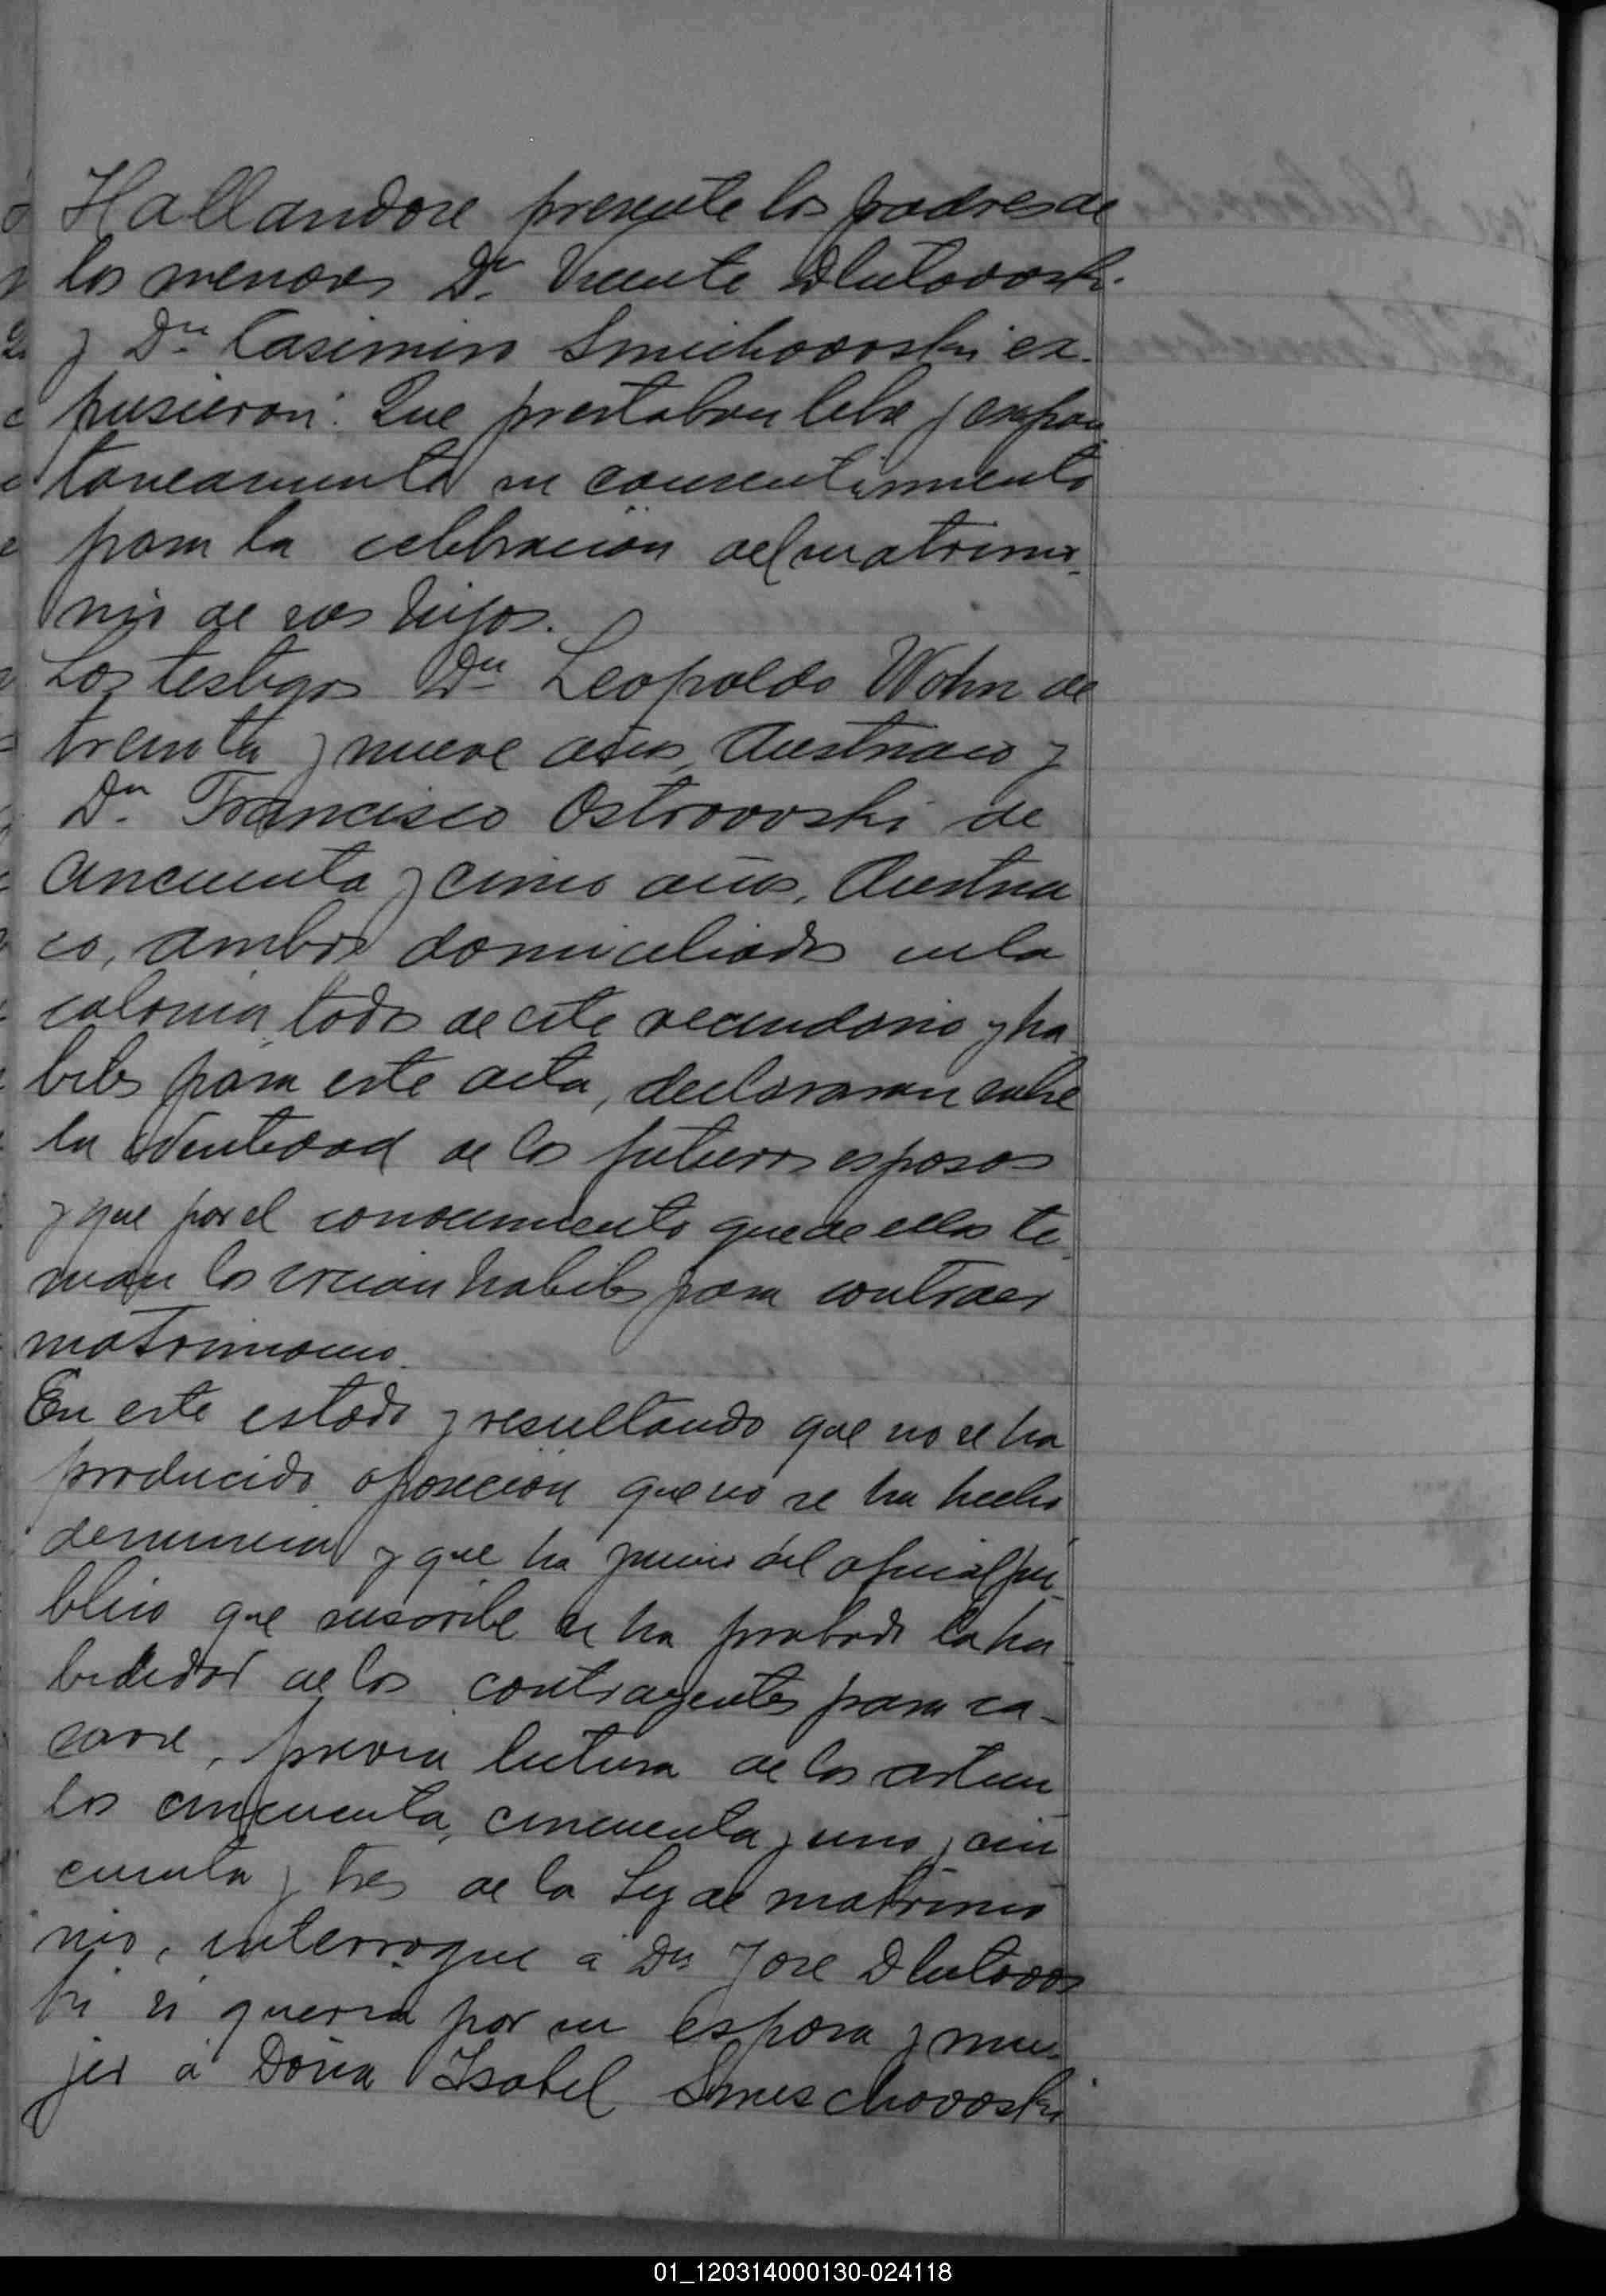 Hallandose presente los padres de
los menores Dn Vicente Dlutowoski
y Dn Casimiro Smichowoski ex-
pusieron: Que prestaban libre y expon
taneamente su consentimiento
para la celebracion del matrimo-
nio de sus hijos.
Los testigos Dn Leopoldo Wohn de
treinta y nueve años, Austriaco y
Dn Francisco Ostrowoski de
cincuenta y cinco años, Austria
co, ambos domiciliados en la
colonia, todos de este vecindario y ha
biles para este acta, declararon sobre
la identidad de los futuros esposos
y que por el conocimiento que de ellos te-
nian los creian habiles para contraer
matrimonio.
En este estado y resultando que no se ha
producido oposicion que no se ha hecho
denuncia y que ha juicio del oficial pu-
blico que suscribe se ha probado la ha-
bilidad de los contrayentes para ca-
sarse, previa lectura de los articu
los cincuenta, cincuenta y uno y cin
cuenta y tres de la Ley de matrimo
nio, interrogue a Dn Jose Dlutowos
ki si queria por su esposa y mu-
jer a Doña Isabel Smieschowoski
01_120314000130-024118